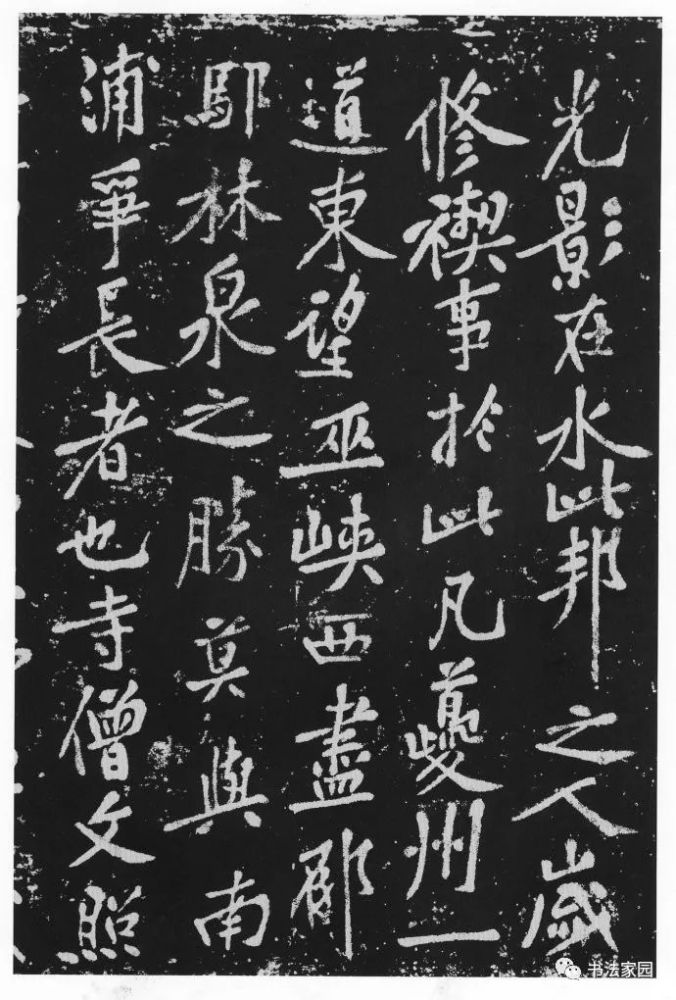 光影在水此邦之人歲
修禊事於此凡夔州一
道東望巫峽西盡郁
鄢林泉之勝莫與南
浦爭長者也寺僧文照
书法家园